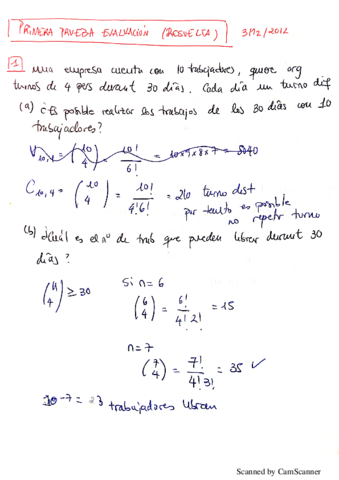 PRIMERA PRUEBA EVALUACIÓN (RESUELTA) 3M2/2012
1 Una empresa cuenta con 10 trabajadores, quiere org
turnos de 4 pers durant 30 días. Cada día un turno dif
(a) ¿Es posible realizar los trabajos de los 30 días con 10
trabajadores?
V10,4 = (10 4) = 10!/6! = 10x9x8x7 = 5040
C10,4 = (10 4) = 10!/4!6! = 210 turno dist
por tanto es posible
no repetir turno
(b) ¿Cuál es el nº de trab que pueden librar durant 30
días?
(n 4) ≥ 30 Si n=6
(6 4) = 6!/4!2! = 15
n=7
(7 4) = 7!/4!3! = 35 ✓
10-7 = 3 trabajadores libran
Scanned by CamScanner